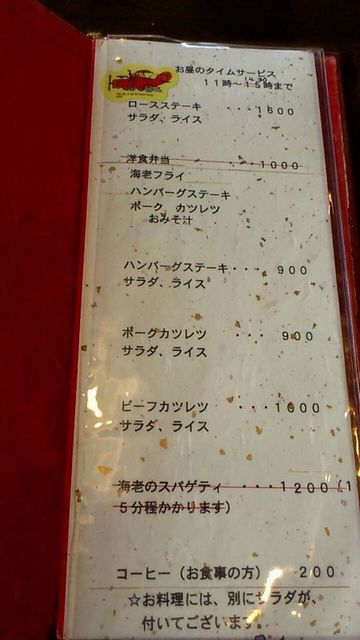 お昼のタイムサービス
14:30
11時〜15時まで
ロースステーキ ・・・1600
サラダ、ライス
洋食弁当 ・・・1000
海老フライ
ハンバーグステーキ
ポーク カツレツ
おみそ汁
ハンバーグステーキ・・・ 900
サラダ、ライス
ポークカツレツ ・・・ 900
サラダ、ライス
ビーフカツレツ ・・・1600
サラダ、ライス
海老のスパゲティ ・・・1200(1
5分程かかります)
コーヒー(お食事の方) 200
☆お料理には、別にサラダが、
付いてございます。